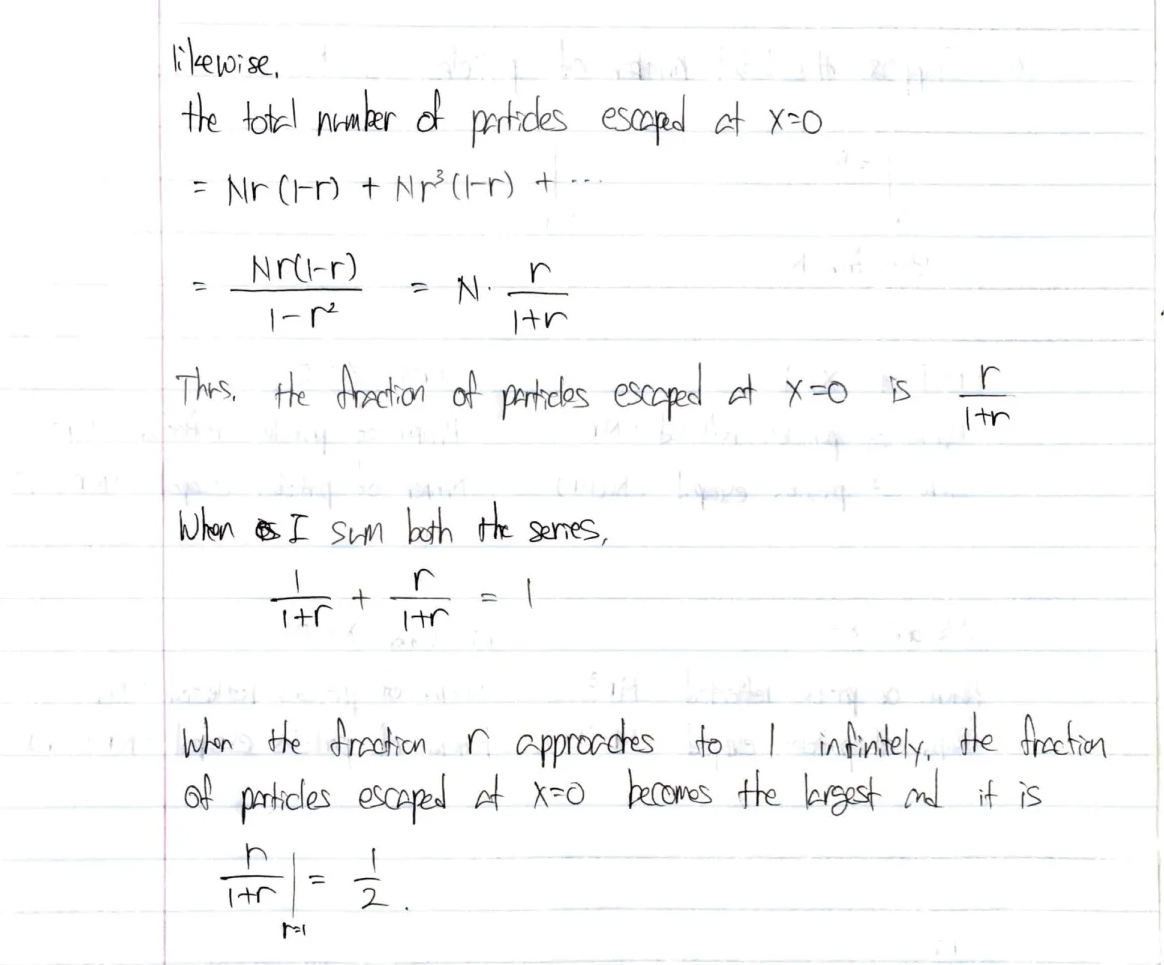 likewise,
the total number of particles escaped at x=0
= Nr(1-r) + Nr³(1-r) + ...
= Nr(1-r)/(1-r²) = N · r/(1+r)
Thus, the fraction of particles escaped at x=0 is r/(1+r)
When I sum both the series,
1/(1+r) + r/(1+r) = 1
When the fraction r approaches to 1 infinitely, the fraction
of particles escaped at x=0 becomes the largest and it is
r/(1+r) |r=1 = 1/2.